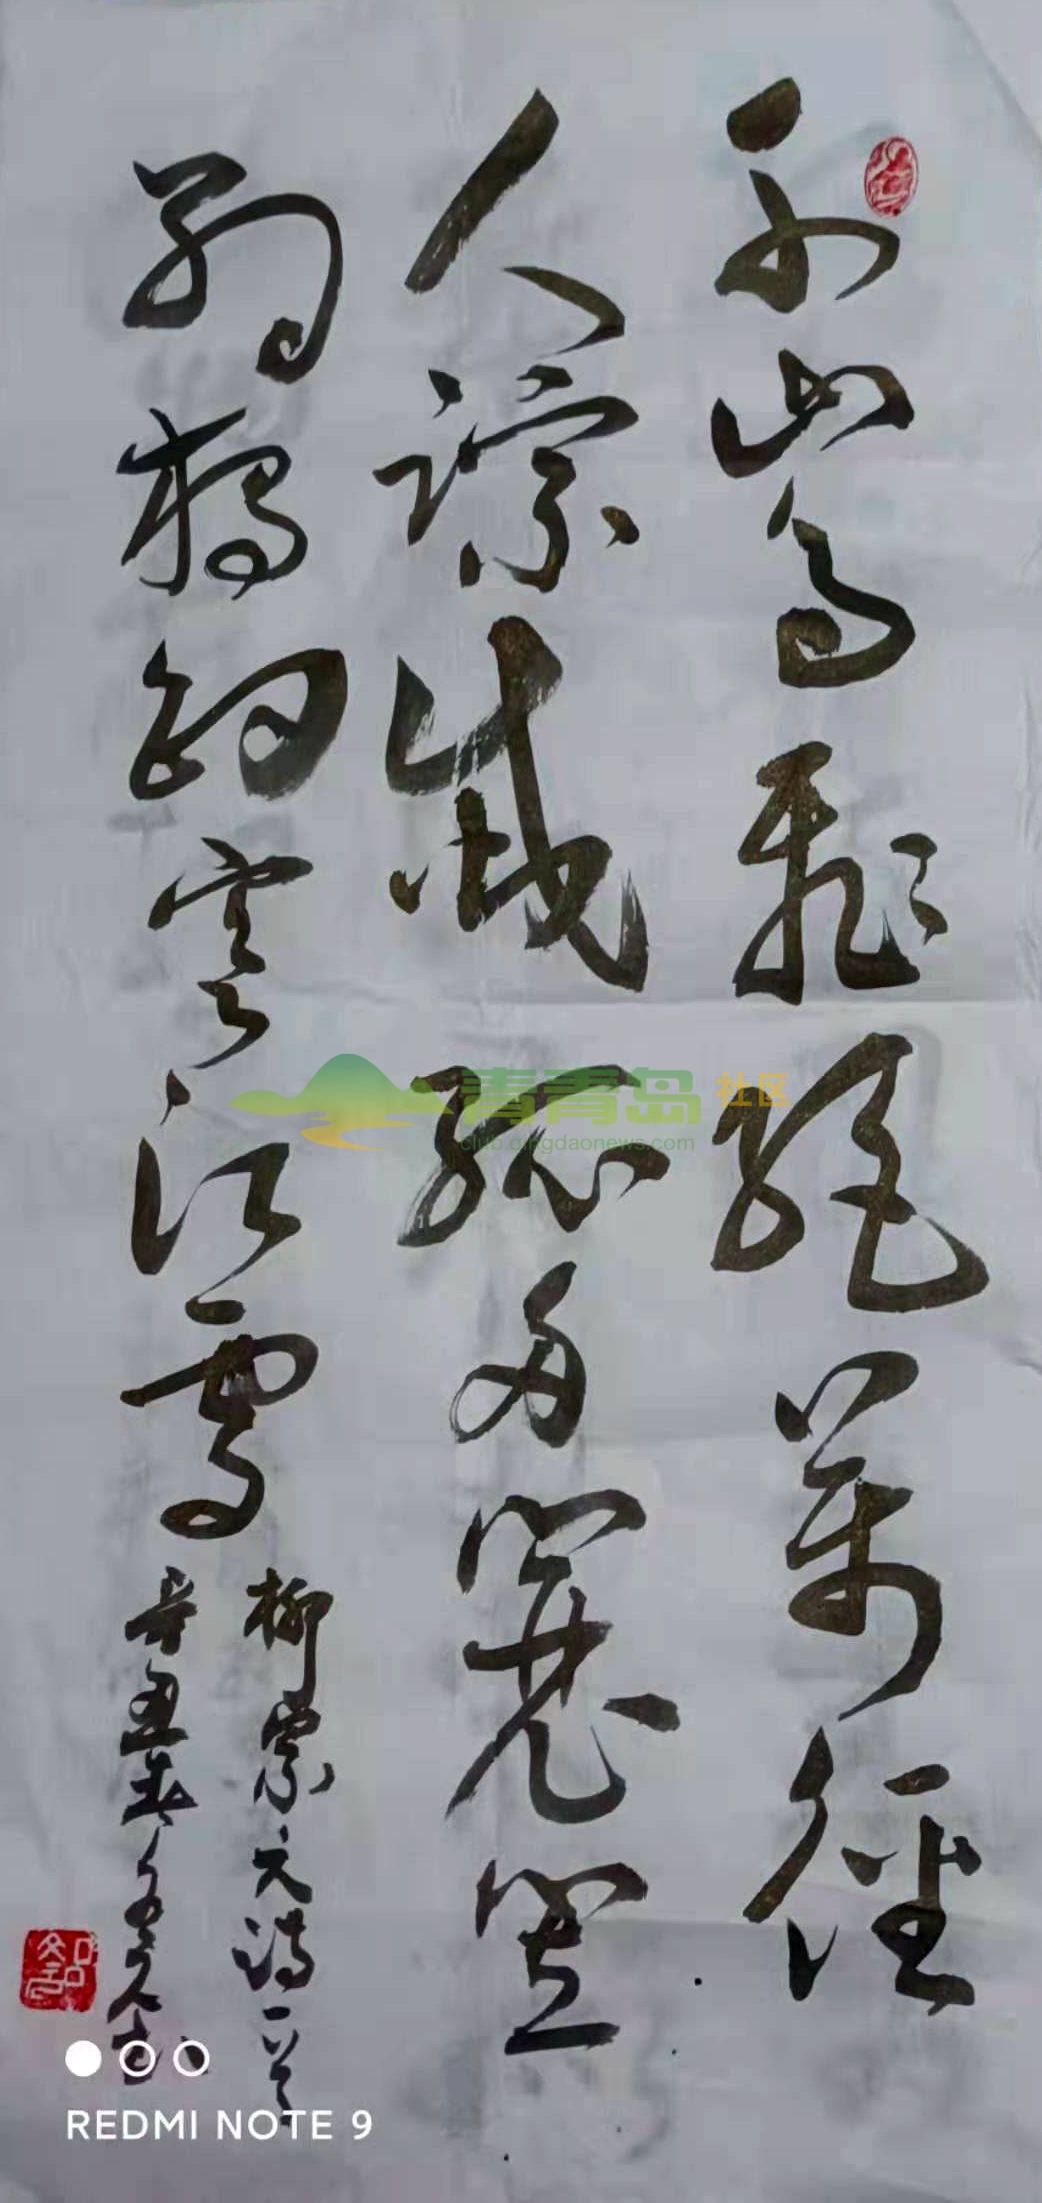 千山鸟飛绝萬径
人踪滅孤舟蓑笠
翁独钓寒江雪
柳宗元诗一首
辛丑春
青青岛社区
club.qingdaonews.com
REDMI NOTE 9